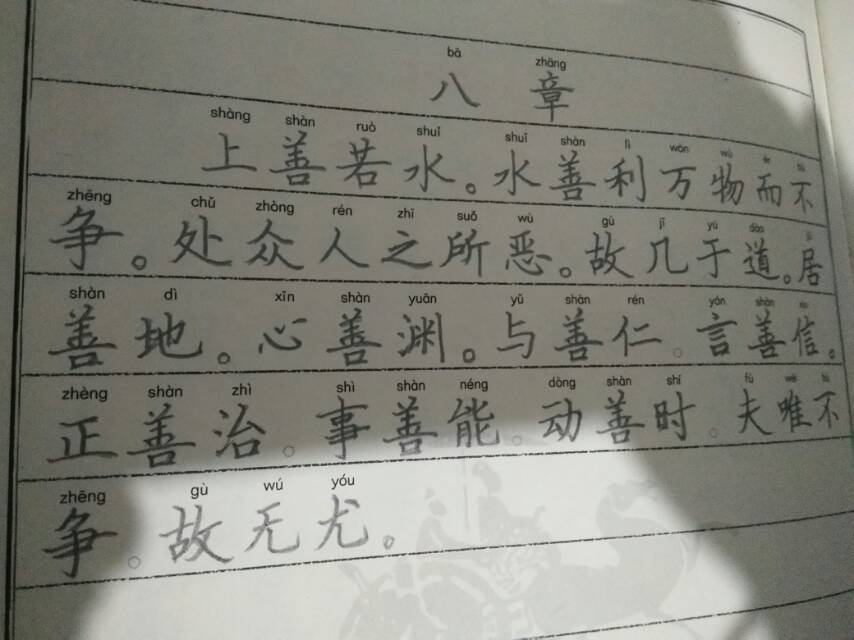 bā zhāng
八章
shàng shàn ruò shuǐ shuǐ shàn lì wàn wù ér bù
上善若水。水善利万物而不
zhēng chǔ zhòng rén zhī suǒ wù gù jī yú dào jū
争。处众人之所恶。故几于道。居
shàn dì xīn shàn yuān yǔ shàn rén yán shàn xìn
善地。心善渊。与善仁。言善信。
zhèng shàn zhì shì shàn néng dòng shàn shí fū wéi bù
正善治。事善能。动善时。夫唯不
zhēng gù wú yóu
争。故无尤。